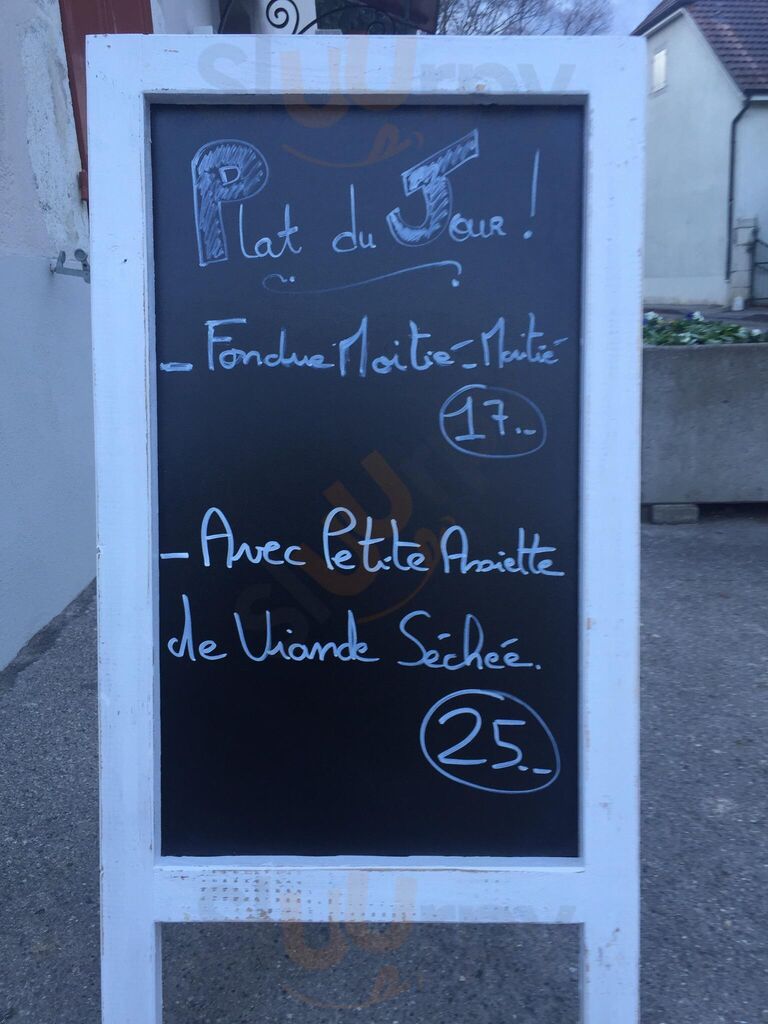 sluurpy
Plat du Jour !
- Fondue Moitié-Moitié
17.-
sluurpy
- Avec Petite Assiette
de Viande Séchée.
25.-
sluurpy